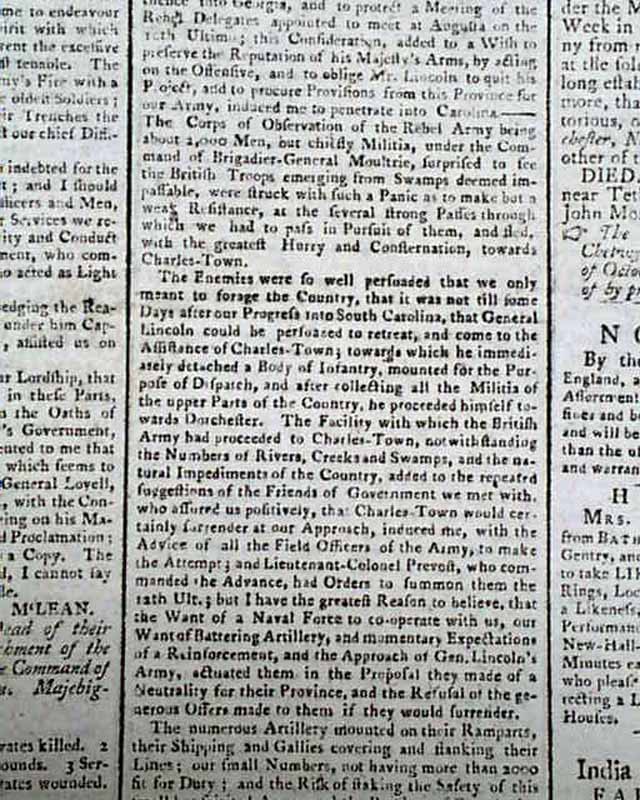 me to endeavour
irit with which
vent the excessive
st tenable. The
my's Fire with a
e oldest Soldiers;
ir Trenches the
t our chief Diffi-
indebted for the
t; and I should
fficers and Men,
r Services we re-
ity and Conduct
ment, who com-
o acted as Light
edging the Rea-
under him Cap-
, assisted us on
ar Lordship, that
in these Parts,
n the Oaths of
's Government,
ented to me that
which seems to
General Lovell,
, with the Con-
ing on his Ma-
d Proclamation;
a Copy. The
d, I cannot say
le.
M'LEAN.
ead of their
chment of the
e Command of
s. Majebig-
vates killed. 2
ounds. 3 Ser-
vates wounded.
thence into Georgia, and to protect a Meeting of the
Rebel Delegates appointed to meet at Augusta on the
10th Ultimo; this Consideration, added to a Wish to
preserve the Reputation of his Majesty's Arms, by acting
on the Offensive, and to oblige Mr. Lincoln to quit his
Project, and to procure Provisions from this Province for
our Army, induced me to penetrate into Carolina.——
The Corps of Observation of the Rebel Army being
about 2,000 Men, but chiefly Militia, under the Com-
mand of Brigadier-General Moultrie, surprised to see
the British Troops emerging from Swamps deemed im-
passable, were struck with such a Panic as to make but a
weak Resistance, at the several strong Passes through
which we had to pass in Pursuit of them, and fled,
with the greatest Hurry and Consternation, towards
Charles-Town.
The Enemies were so well persuaded that we only
meant to forage the Country, that it was not till some
Days after our Progress into South Carolina, that General
Lincoln could be persuaded to retreat, and come to the
Assistance of Charles-Town; towards which he immedi-
ately detached a Body of Infantry, mounted for the Pur-
pose of Dispatch, and after collecting all the Militia of
the upper Parts of the Country, he proceeded himself to-
wards Dorchester. The Facility with which the British
Army had proceeded to Charles-Town, notwithstanding
the Numbers of Rivers, Creeks and Swamps, and the na-
tural Impediments of the Country, added to the repeated
suggestions of the Friends of Government we met with,
who assured us positively, that Charles-Town would cer-
tainly surrender at our Approach, induced me, with the
Advice of all the Field Officers of the Army, to make
the Attempt; and Lieutenant-Colonel Prevost, who com-
manded the Advance, had Orders to summon them the
12th Ult.; but I have the greatest Reason to believe, that
the Want of a Naval Force to co-operate with us, our
Want of Battering Artillery, and momentary Expectations
of a Reinforcement, and the Approach of Gen. Lincoln's
Army, actuated them in the Proposal they made of a
Neutrality for their Province, and the Refusal of the ge-
nerous Offers made to them if they would surrender.
The numerous Artillery mounted on their Ramparts,
their Shipping and Gallies covering and flanking their
Lines; our small Numbers, not having more than 2000
fit for Duty; and the Risk of staking the Safety of this
der the M
Week in
ny from
at the sole
long estab
more, tha
torious,
chester, N
other of
DIED.
near Tet
John Mo
The
Chetwy
of Octo
of by pr
N O
By the
England,
Assortment
fines and b
and will be
than the o
and warran
H
MRS.
from BATH
Gentry, and
to take LI
Rings, Loc
a Likeness
Performan
New-Hall-
Minutes e
who please
recting a L
Houses.
India
F A